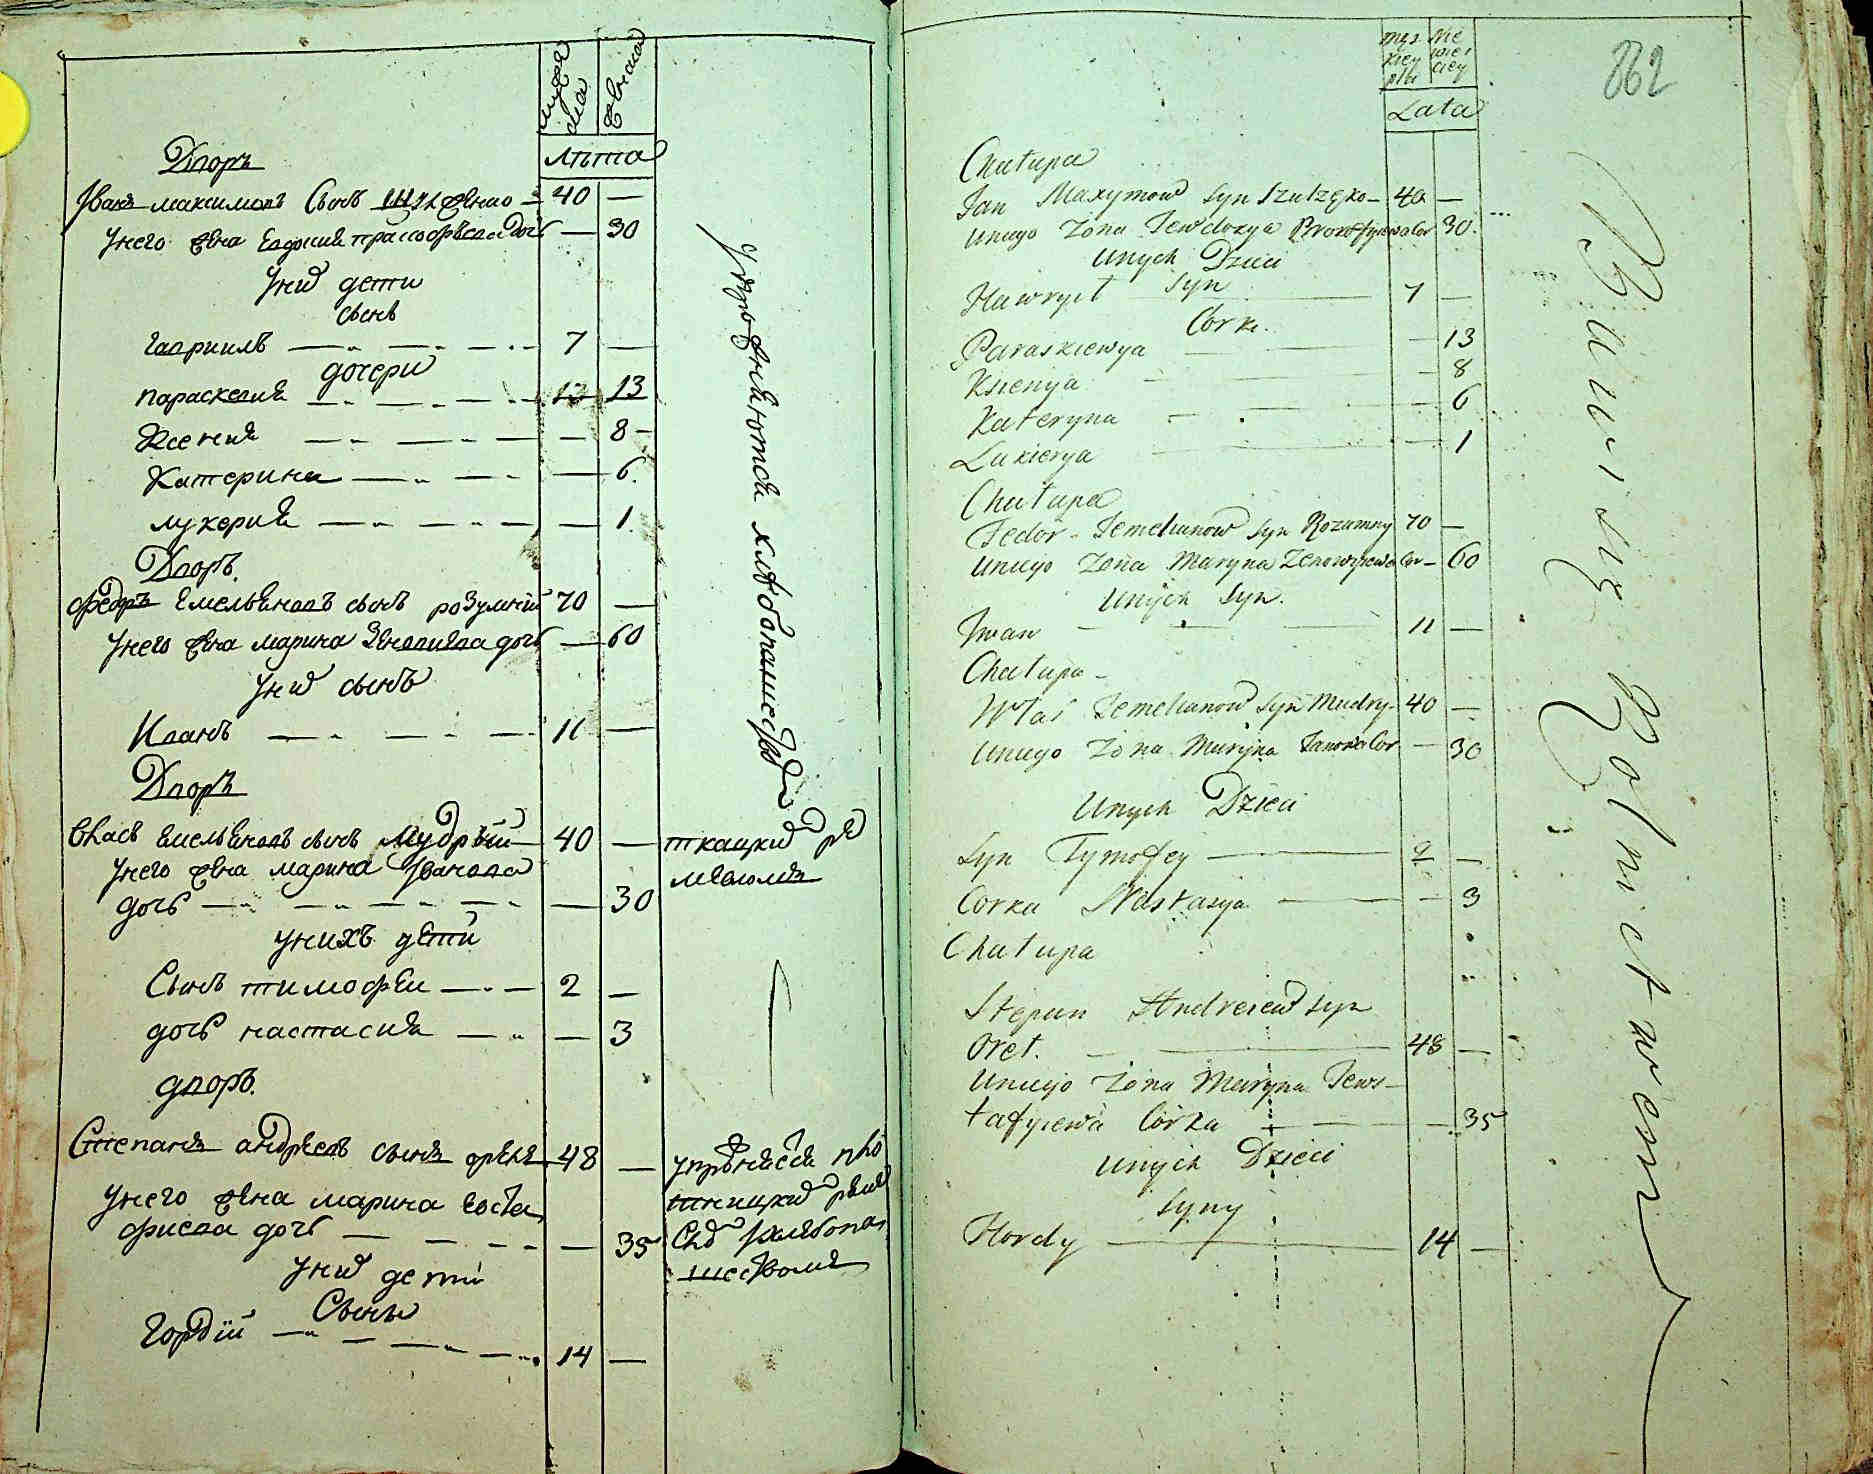 муже
ска
женска
лѣта
Дворъ
Иванъ максимовъ Сынъ Шулженко — 40 —
Унего жена Евдокия прокофиева дочь — 30
Уних дети
сынъ
гавриилъ — 7 —
дочери
параскевия — 13 13
Ксения — 8 —
Катерина — 6.
лукерия — 1.
Дворъ.
федоръ Емельяновъ сынъ розумний 70 —
Унего жена марина Зеновиева дочь — 60
Уних сынъ
Иванъ — 11 —
Дворъ
Власъ Емельяновъ сынъ Мудрый — 40 —
Унего жена марина Иванова
дочь — 30
Унихъ дети
Сынъ тимофеи — 2 —
дочь настасия — 3
дворъ.
Степанъ андреевъ сынъ 48 —
Унего жена марина Евста
фиева дочь — 35
Уних дети
Сыны
Гордий — 14 —
Упражняются хлебопашеством
ткацким ре
меслом
862
męs Nie
kiey wie
płci ciey
Lata
Chałupa
Jan Maxymow syn Szulzęko — 40 —
Uniego Zona Jewdokya Prokofyiewa Cor 30.
Unych Dzieci
Syn
Hawryił — 7 —
Corki.
Paraskiewya — 13
Ksienya — 8
Kateryna — 6
Łukierya — 1
Chałupa
Fedor Jemelianow syn Rozumny 70 —
Uniego Zona Maryna Zenowyiewa Cor — 60
Unych Syn.
Iwan — 11 —
Chałupa —
Własʼ Jemelianow Syn Mudry — 40 —
Uniego Zona Maryna Janowa Cor — 30
Unych Dzieci
Syn Tymofiey — 2 —
Corka Nastasya — 3
Chałupa
Stepan Andreiew syn
Oreł. — 48 —
Uniego Zona Maryna Jews-
tafyiewa Corka — 35
Unych Dzieci
Syny
Hordy — 14 —
Bawią się Rolnictwem